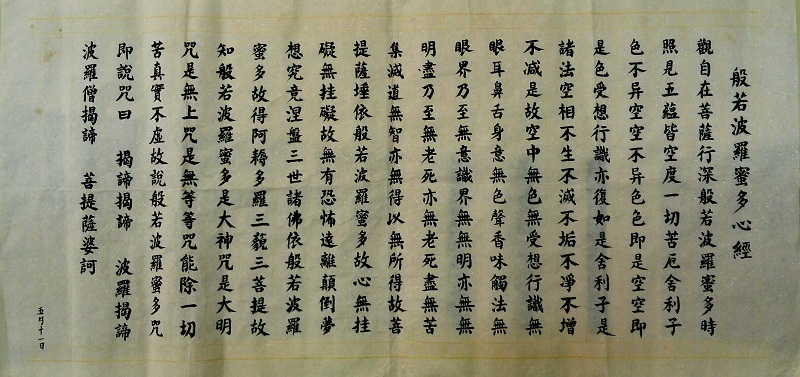 般若波羅蜜多心經
觀自在菩薩行深般若波羅蜜多時
照見五蘊皆空度一切苦厄舍利子
色不异空空不异色色即是空空即
是色受想行識亦復如是舍利子是
諸法空相不生不滅不垢不凈不增
不减是故空中無色無受想行識無
眼耳鼻舌身意無色聲香味觸法無
眼界乃至無意識界無無明亦無無
明盡乃至無老死亦無老死盡無苦
集滅道無智亦無得以無所得故菩
提薩埵依般若波羅蜜多故心無挂
礙無挂礙故無有恐怖遠離顛倒夢
想究竟涅盤三世諸佛依般若波羅
蜜多故得阿耨多羅三藐三菩提故
知般若波羅蜜多是大神咒是大明
咒是無上咒是無等等咒能除一切
苦真實不虛故說般若波羅蜜多咒
即說咒曰 揭諦揭諦 波羅揭諦
波羅僧揭諦 菩提薩婆訶
五月十一日